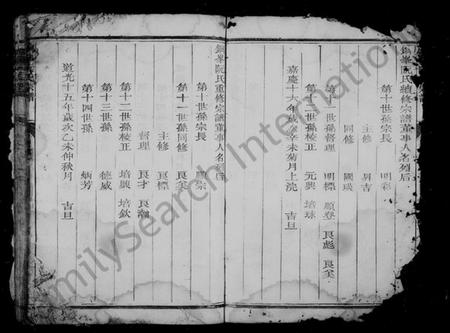 鋼峯阮氏續修宗譜董事人名列后
第十世孫宗長 明彩
主修 昇吉
同修 國瑛
第十一世孫督理 明標 顯登 良彪 良奚
第十二世孫校正 元興 培球
嘉慶十六年歲次辛未菊月上浣 吉旦
阮氏重修宗譜董事人名
第十世孫宗長
第十一世孫同修 良奚
主修 良標
督理 良才 良瀚
第十二世孫校正 培興 培欽
第十三世孫 德威
第十四世孫 炳芳
道光十五年歲次乙未仲秋月 吉旦
FamilySearch International